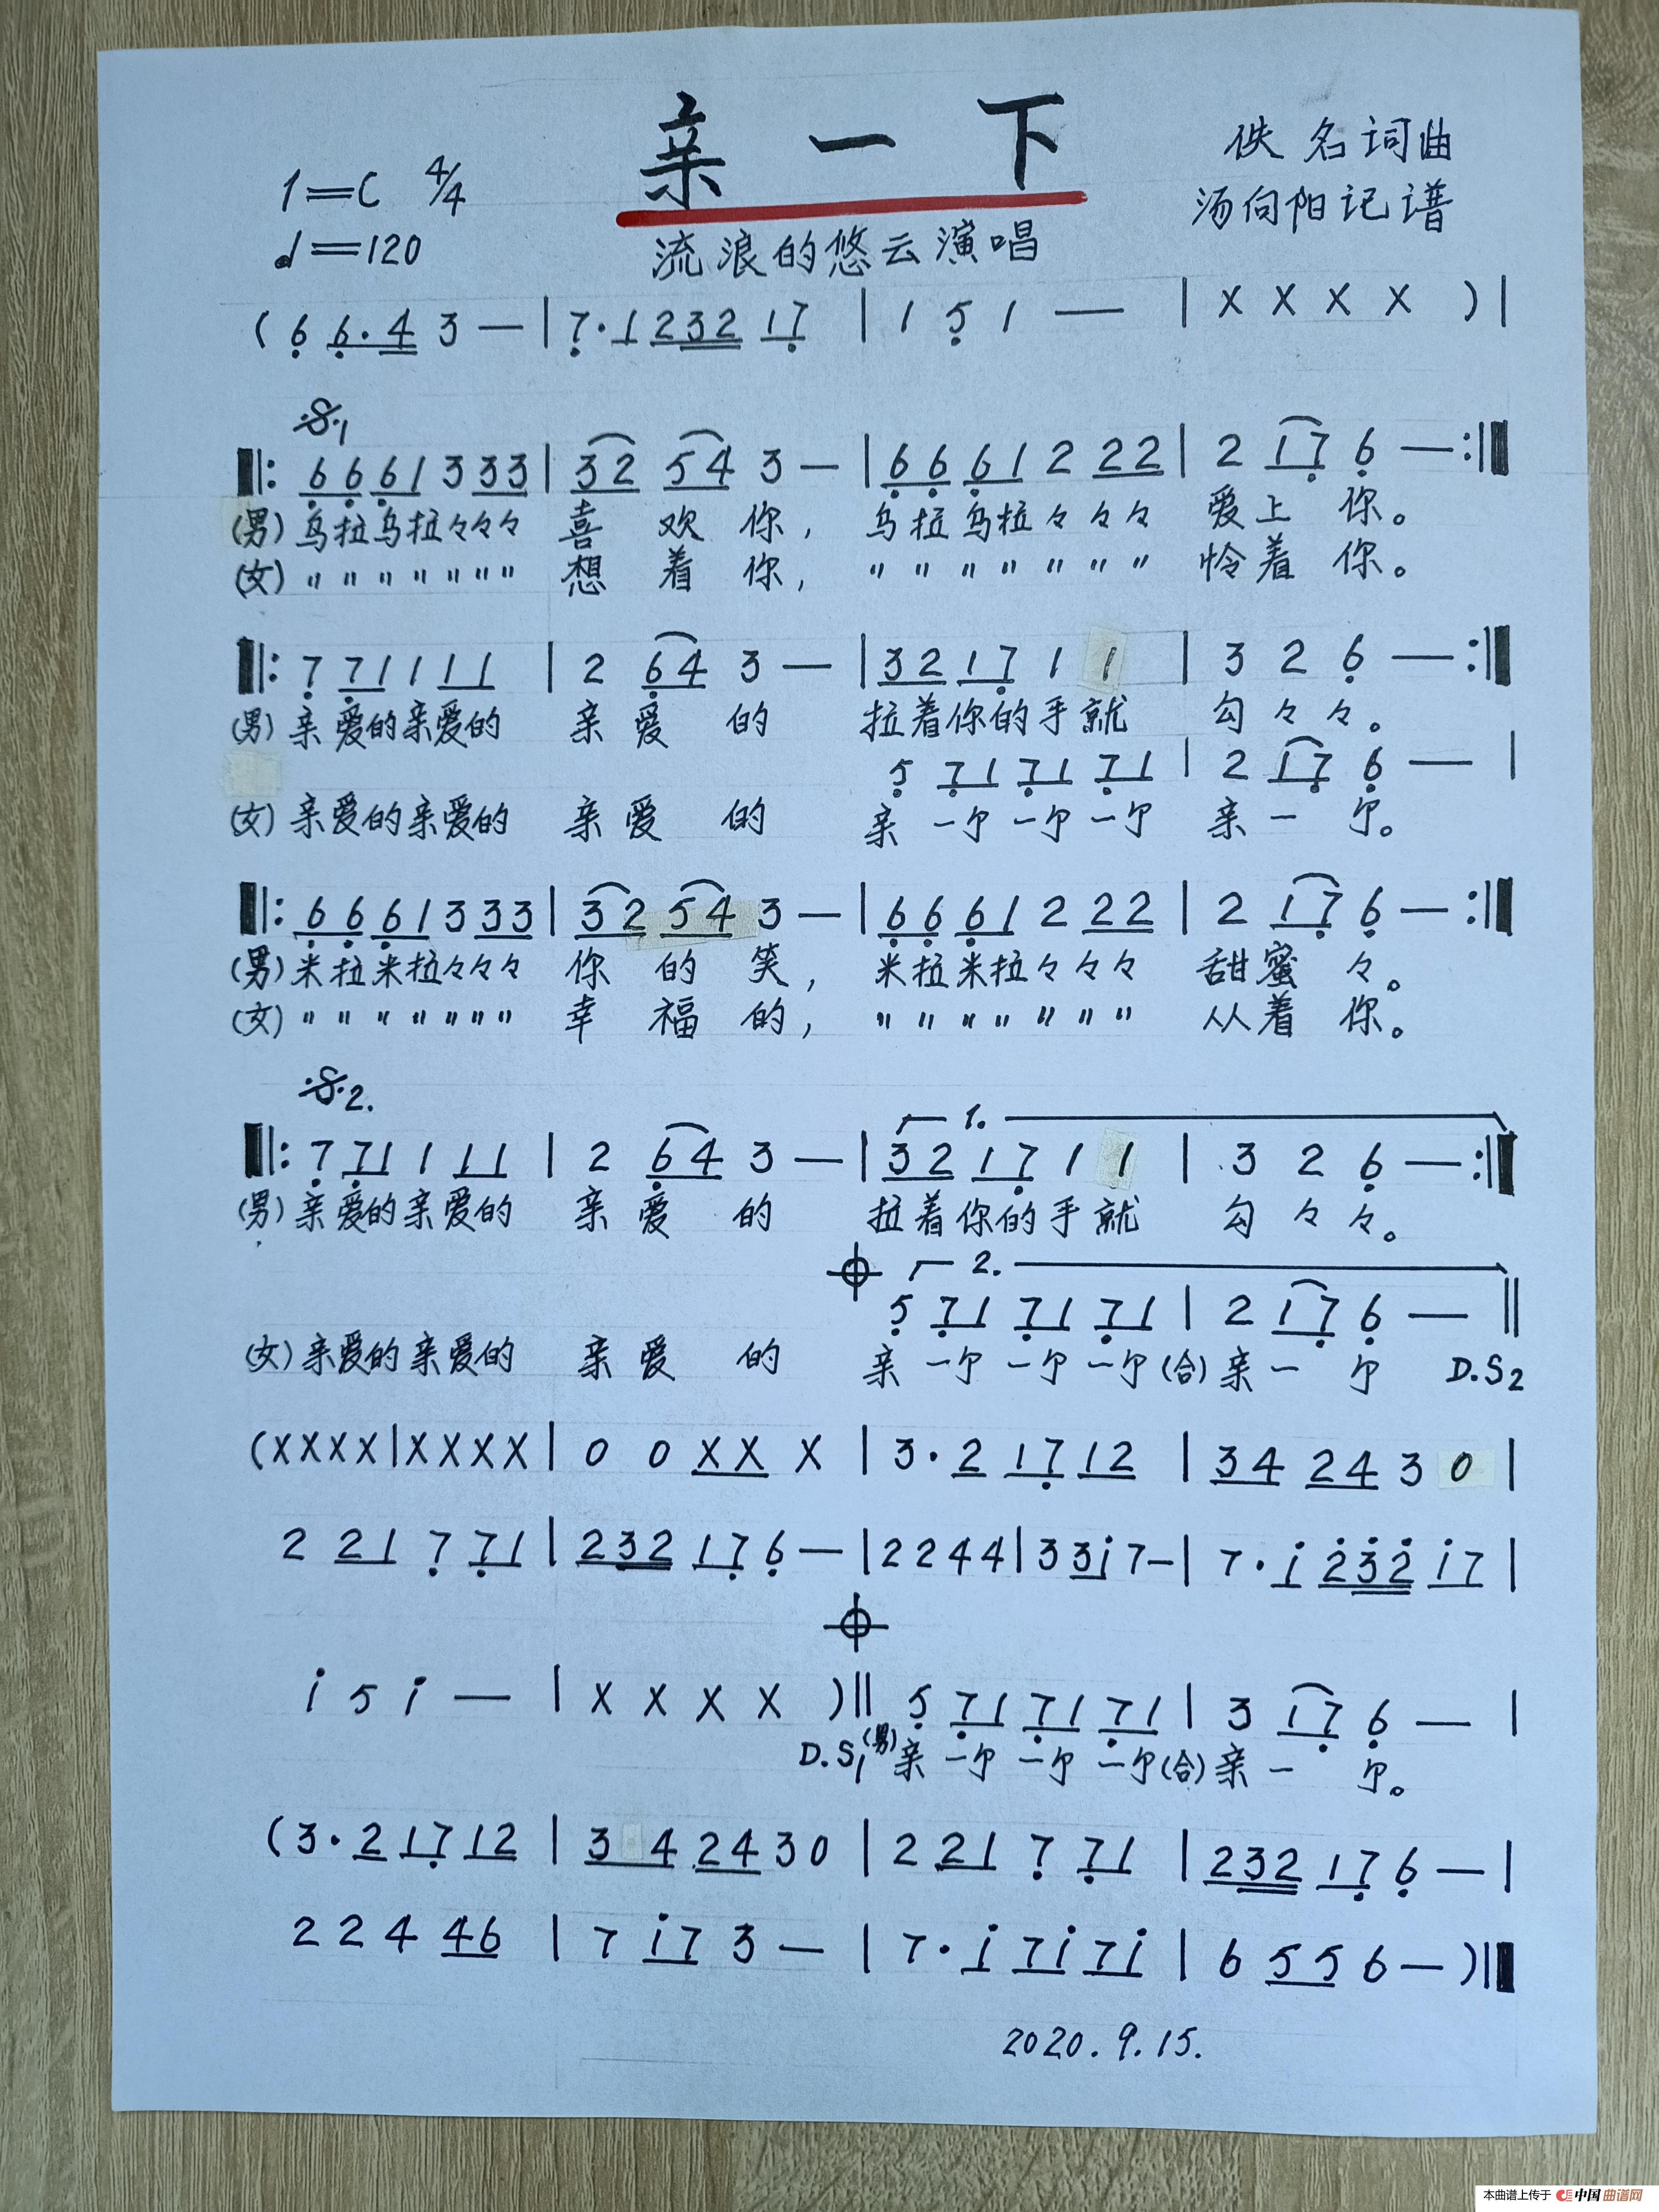 亲 一 下
佚 名 词 曲
汤向阳记谱
1=C 4/4
♩=120
流浪的悠云演唱
( 6̣ 6̣·4 3 — | 7̣·1 232 17̣ | 1 5̣ 1 — | X X X X ) |
𝄋1
‖: 6̣6̣ 6̣1 3 33 | 32 54 3 — | 6̣6̣ 6̣1 2 22 | 2 17̣ 6̣ — :‖
(男) 乌拉乌拉々々々 喜 欢 你, 乌拉乌拉々々々 爱上 你。
(女) 〃〃〃〃〃〃〃 想 着 你, 〃〃〃〃〃〃〃 怜着 你。
‖: 7̣ 7̣1 1 11 | 2 6̣4 3 — | 32 17̣ 1 1 | 3 2 6̣ — :‖
(男) 亲爱的亲爱的 亲爱 的 拉着你的手就 勾々々。
5̣ 7̣1 7̣1 7̣1 | 2 17̣ 6̣ — |
(女) 亲爱的亲爱的 亲爱 的 亲 一尔 一尔 一尔 亲一 尔。
‖: 6̣6̣ 6̣1 3 33 | 32 54 3 — | 6̣6̣ 6̣1 2 22 | 2 17̣ 6̣ — :‖
(男) 米拉米拉々々々 你 的 笑, 米拉米拉々々々 甜蜜 々。
(女) 〃〃〃〃〃〃〃 幸 福 的, 〃〃〃〃〃〃〃 从着 你。
𝄋2.
1.
‖: 7̣ 7̣1 1 11 | 2 6̣4 3 — | 32 17̣ 1 1 | 3 2 6̣ — :‖
(男) 亲爱的亲爱的 亲爱 的 拉着你的手就 勾々々。
𝄌 2.
5̣ 7̣1 7̣1 7̣1 | 2 17̣ 6̣ — ‖
(女) 亲爱的亲爱的 亲爱 的 亲 一尔 一尔 一尔 (合) 亲一 尔 D.S2
(XXXX | XXXX | 0 0 XX X | 3·2 17̣ 12 | 34 24 3 0 |
2 21 7̣ 7̣1 | 232 17̣ 6̣ — | 2 2 4 4 | 3 3i 7 — | 7·i 2̇3̇2̇ i7 |
𝄌
i 5 i — | X X X X )‖ 5̣ 7̣1 7̣1 7̣1 | 3 17̣ 6̣ — |
D.S1 (男) 亲 一尔 一尔 一尔 (合) 亲一 尔。
(3·2 17̣ 12 | 34 24 3 0 | 2 21 7̣ 7̣1 | 232 17̣ 6̣ — |
2 2 4 46 | 7 i7 3 — | 7·i 7i 7i | 6 55 6 — )‖
2020.9.15.
本曲谱上传于 中国曲谱网